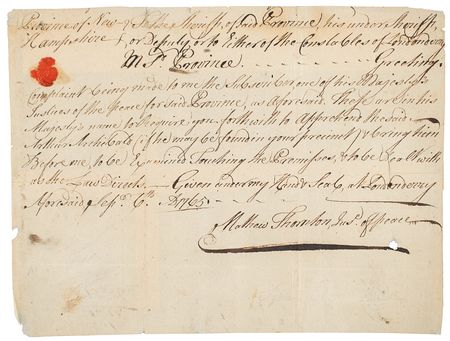 Province of New } To the Sheriff, of said Province, his under Sheriff,
Hampshire } or Deputy, or to Either of the Constables of Londonderry
in sd. Province ——— Greeting.
Complaint being made to me the Subscriber one of his Majestys
Justices of the Peace for said Province, as aforesaid. These are in his
Majestys name to Require you forthwith to Apprehend the said
Arthur Archibald (if he may be found in your precinct) & bring him
Before me to be Examined Touching the Premisses, & to be Dealt with
as the Law Directs — Given under my Hand & Seal, at Londonderry
Aforesaid Sepr. 6th A 1765
Mathew Thornton, Jus. of peace